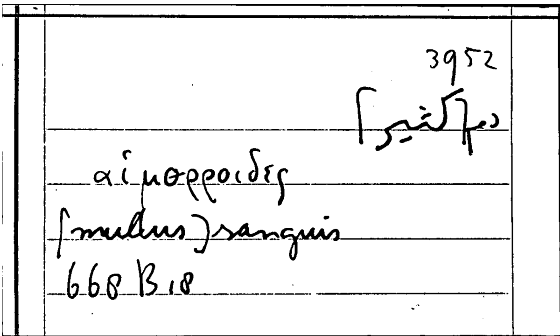 3952
دم [كثير]
αἱμορροιδες
[multus] sanguis
668 B 18